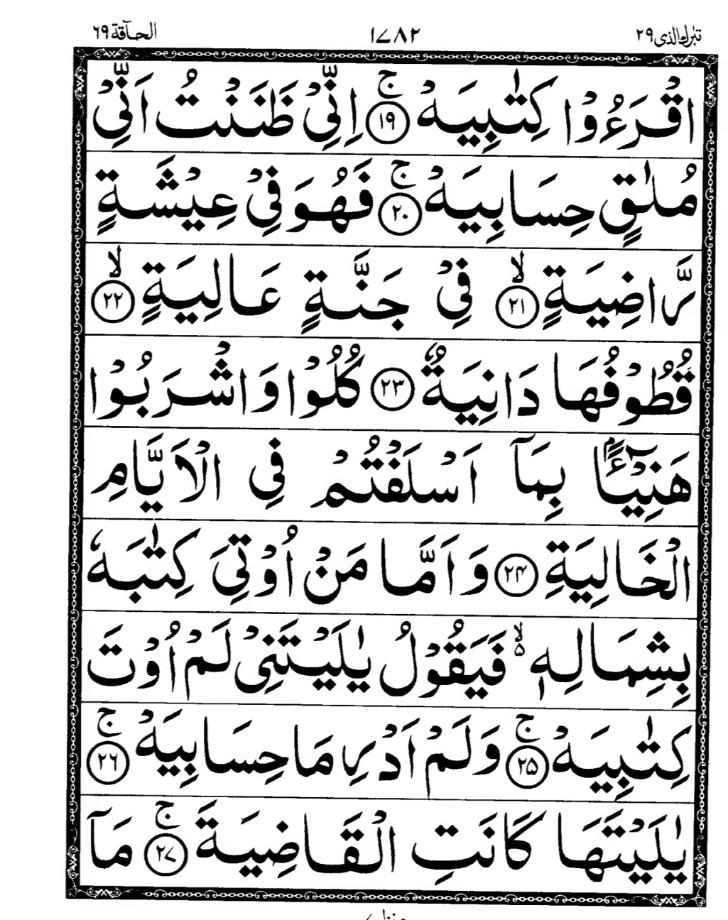 تبٰرك الذی ٢٩ ١٧٨٢ الحآقة ٦٩
اقْرَءُوْا كِتٰبِيَهْ ۚ ﴿١٩﴾ اِنِّیْ ظَنَنْتُ اَنِّیْ
مُلٰقٍ حِسَابِيَهْ ۚ ﴿٢٠﴾ فَهُوَ فِیْ عِيْشَةٍ
رَّاضِيَةٍ ۙ ﴿٢١﴾ فِیْ جَنَّةٍ عَالِيَةٍ ۙ ﴿٢٢﴾
قُطُوْفُهَا دَانِيَةٌ ﴿٢٣﴾ كُلُوْا وَاشْرَبُوْا
هَنِيْٓـًٔۢا بِمَآ اَسْلَفْتُمْ فِی الْاَيَّامِ
الْخَالِيَةِ ﴿٢٤﴾ وَاَمَّا مَنْ اُوْتِیَ كِتٰبَهٗ
بِشِمَالِهٖ ۙ۬ فَيَقُوْلُ يٰلَيْتَنِیْ لَمْ اُوْتَ
كِتٰبِيَهْ ۚ ﴿٢٥﴾ وَلَمْ اَدْرِ مَا حِسَابِيَهْ ۚ ﴿٢٦﴾
يٰلَيْتَهَا كَانَتِ الْقَاضِيَةَ ۚ ﴿٢٧﴾ مَآ